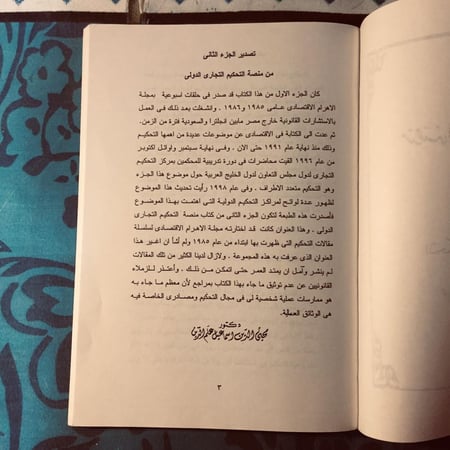 تصدير الجزء الثانى
من منصة التحكيم التجارى الدولى
كان الجزء الاول من هذا الكتاب قد صدر فى حلقات اسبوعية بمجلة
الاهرام الاقتصادى عامى ١٩٨٥ و ١٩٨٦ . وانشغلت بعد ذلك فى العمل
بالاستشارات القانونية خارج مصر مابين انجلترا والسعودية فترة من الزمن.
ثم عدت الى الكتابة فى الاقتصادى عن موضوعات عديدة من اهمها التحكيم
وذلك منذ نهاية عام ١٩٩١ حتى الان . وفى نهاية سبتمبر واوائل اكتوبر
من عام ١٩٩٦ القيت محاضرات فى دورة تدريبية للمحكمين بمركز التحكيم
التجارى لدول مجلس التعاون لدول الخليج العربية حول موضوع هذا الجزء
وهو التحكيم متعدد الاطراف . وفى عام ١٩٩٨ رأيت تحديث هذا الموضوع
لظهور عدة لوائح لمراكز التحكيم الدولية التى اهتمت بهذا الموضوع
فأصدرت هذه الطبعة لتكون الجزء الثانى من كتاب منصة التحكيم التجارى
الدولى . وهذا العنوان كانت قد اختارته مجلة الاهرام الاقتصادى لسلسلة
مقالات التحكيم التى ظهرت بها ابتداء من عام ١٩٨٥ ولم أشأ ان اغير هذا
العنوان الذى عرفت به هذه المجموعة . ولازال لدينا الكثير من تلك المقالات
لم ينشر وآمل ان يمتد العمر حتى اتمكن من ذلك . وأعتذر لزملاء
القانونيين عن عدم توثيق ما جاء بهذا الكتاب بمراجع لأن معظم ما جاء به
هو ممارسات عملية شخصية لى فى مجال التحكيم ومصادرى الخاصة فيه
هى الوثائق العملية.
دكتور
محيى الدين اسماعيل علم الدين
٣